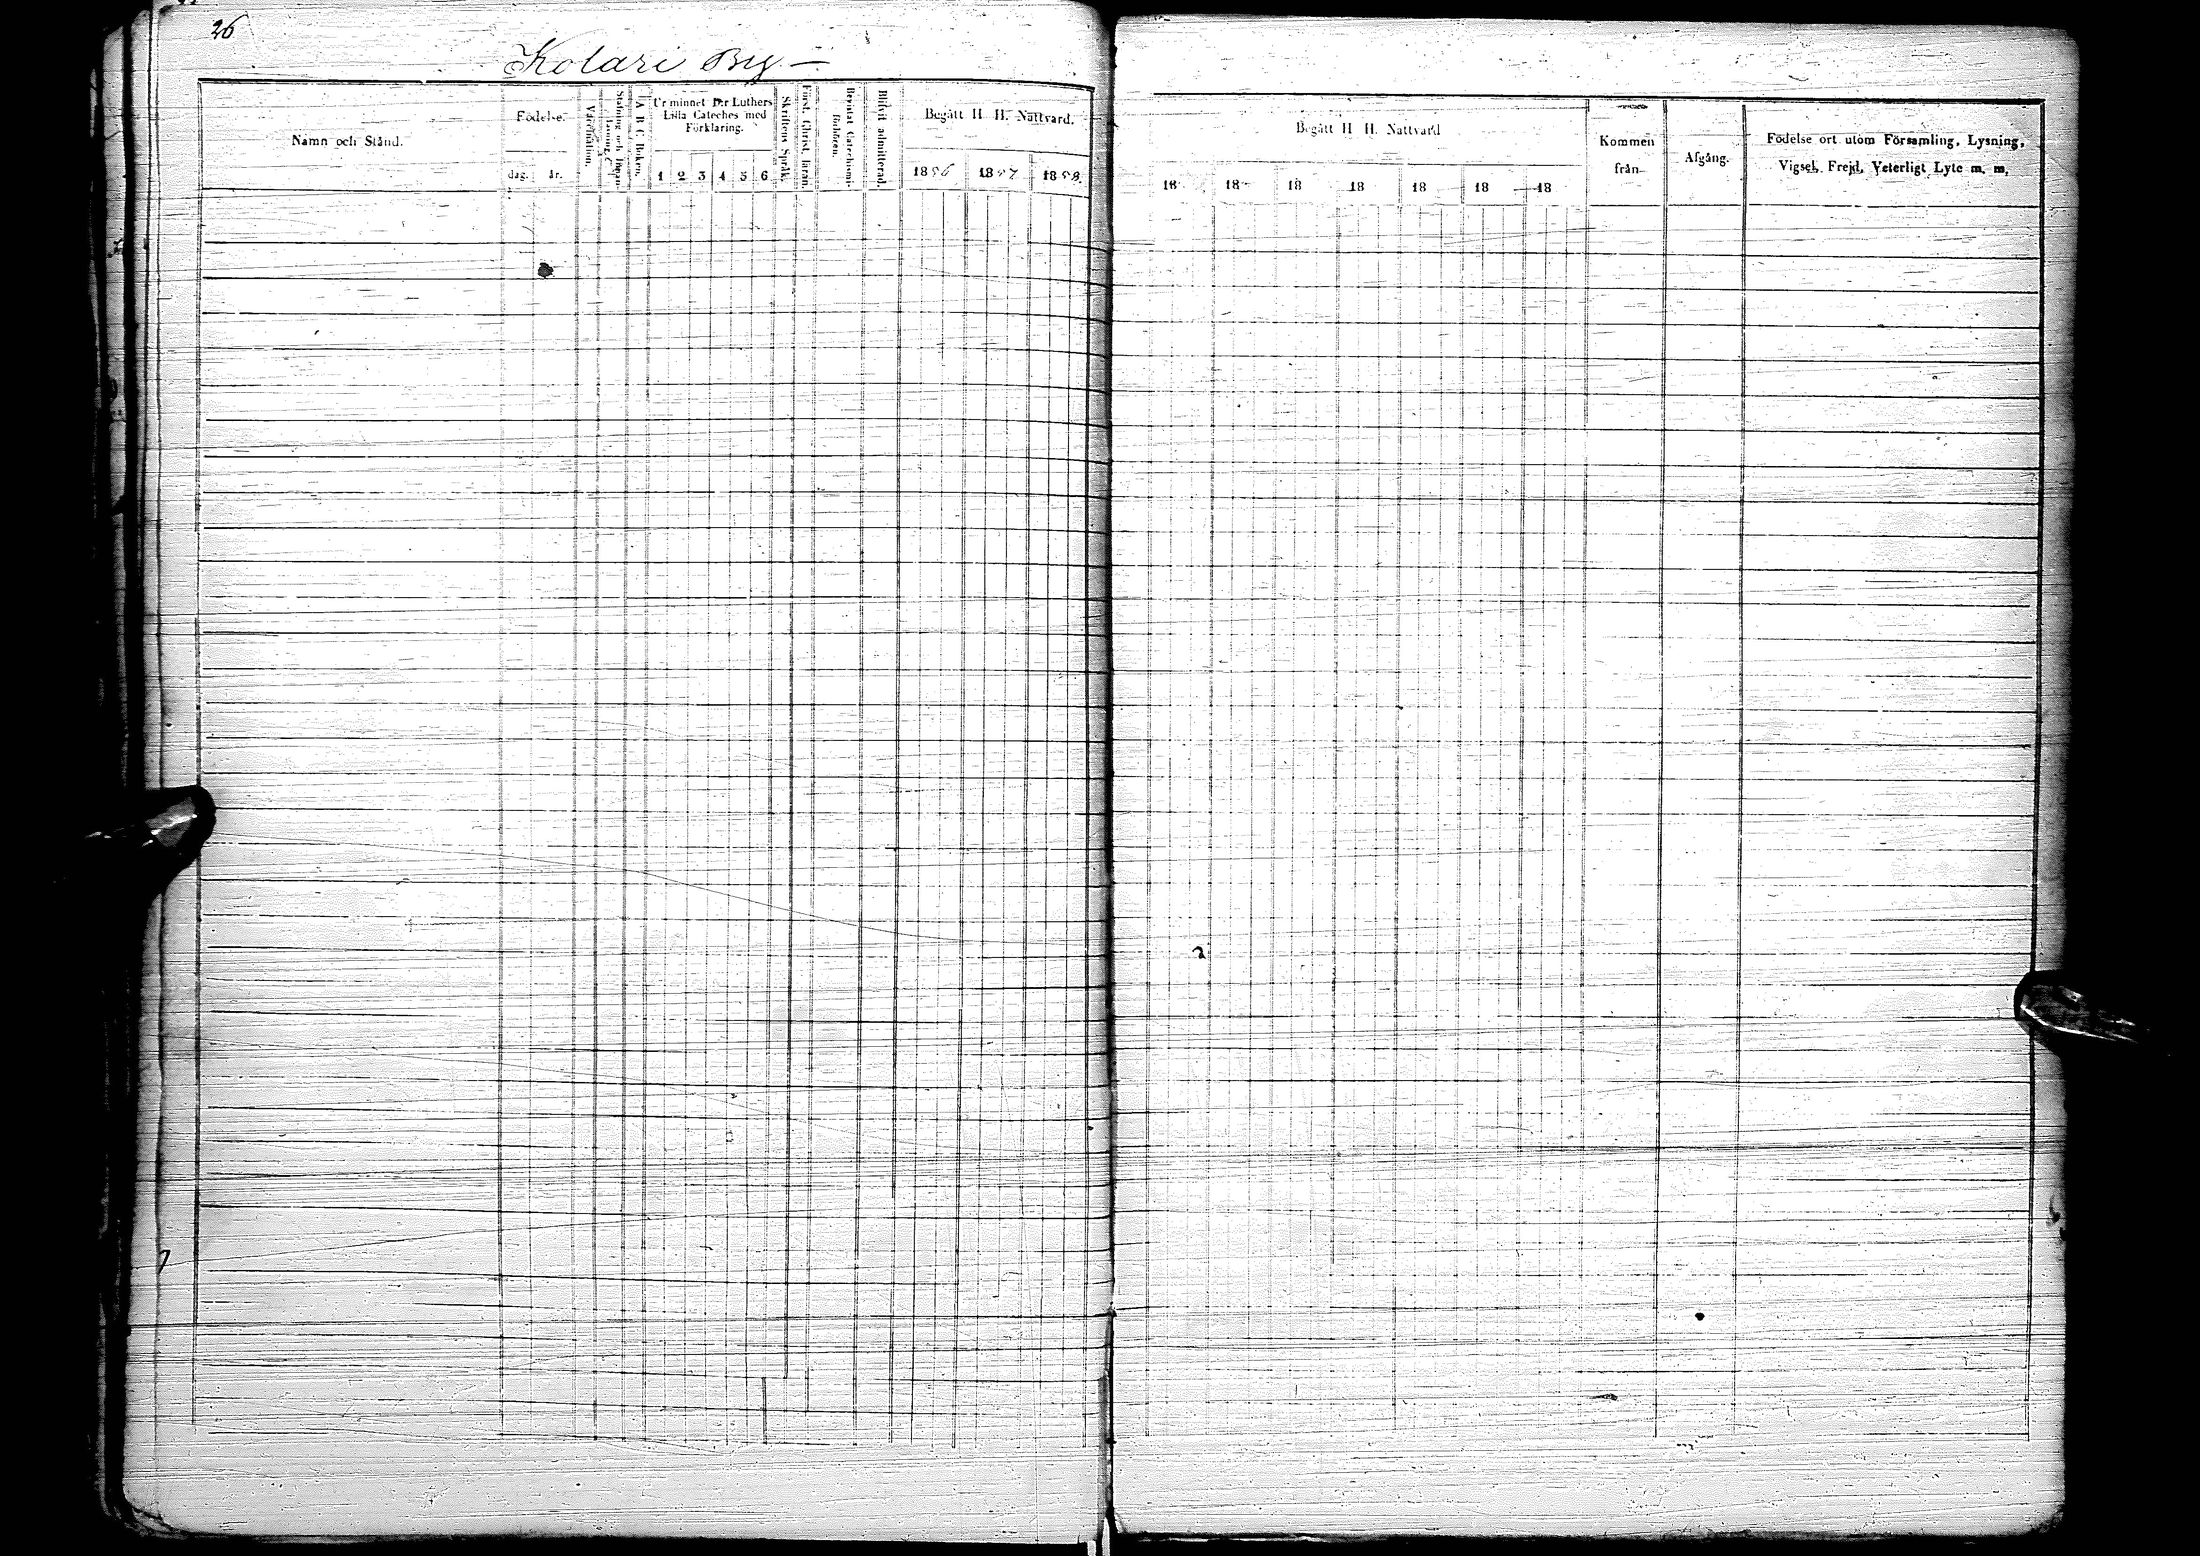 26
Kolari By
Namn och Stånd.
Födelse.
dag. år.
A B C Boken.
Ur minnet Der Luthers
Lilla Cateches med
Förklaring.
1 2 3 4 5 6
Skriftens Språk.
Först. Christ. läran.
Bevistat Catechismi-
förhören.
Blifvit admitterad.
Begått H. H. Nattvard.
1856 1857 1858
Begått H H. Nattvard
18 18 18 18 18 18 18
Kommen
från
Afgång.
Födelse ort utom Församling, Lysning,
Vigsel, Frejd, Veterligt Lyte m. m.